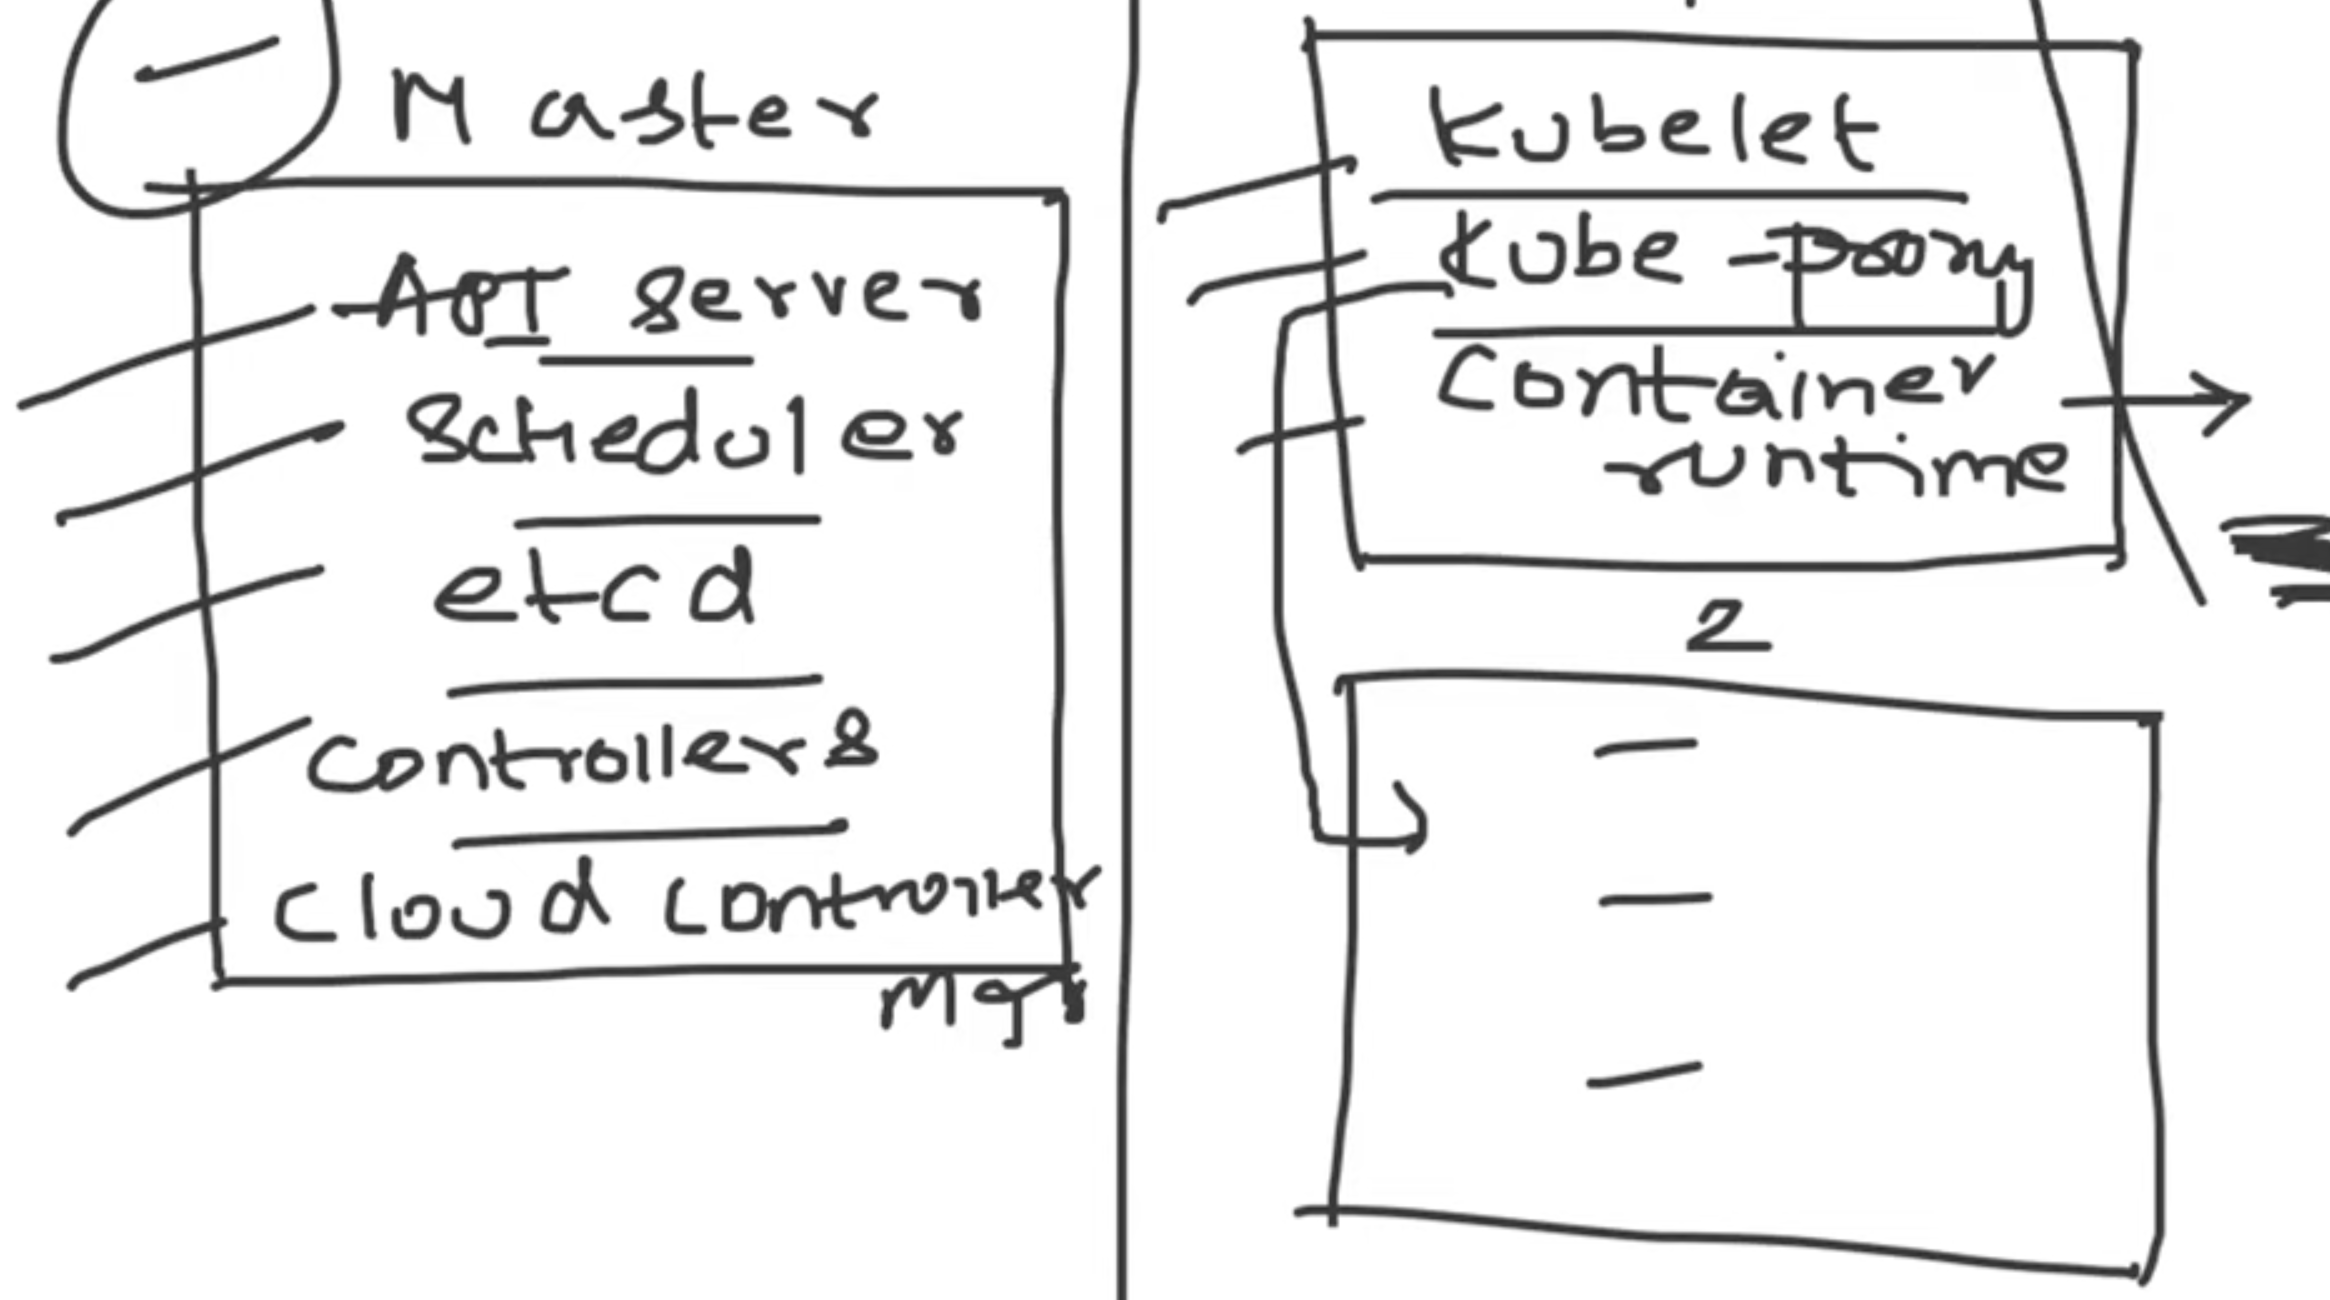 Master
API server
Scheduler
etcd
Controllers
Cloud controller
Mgr
Kubelet
Kube-proxy
Container
runtime
2